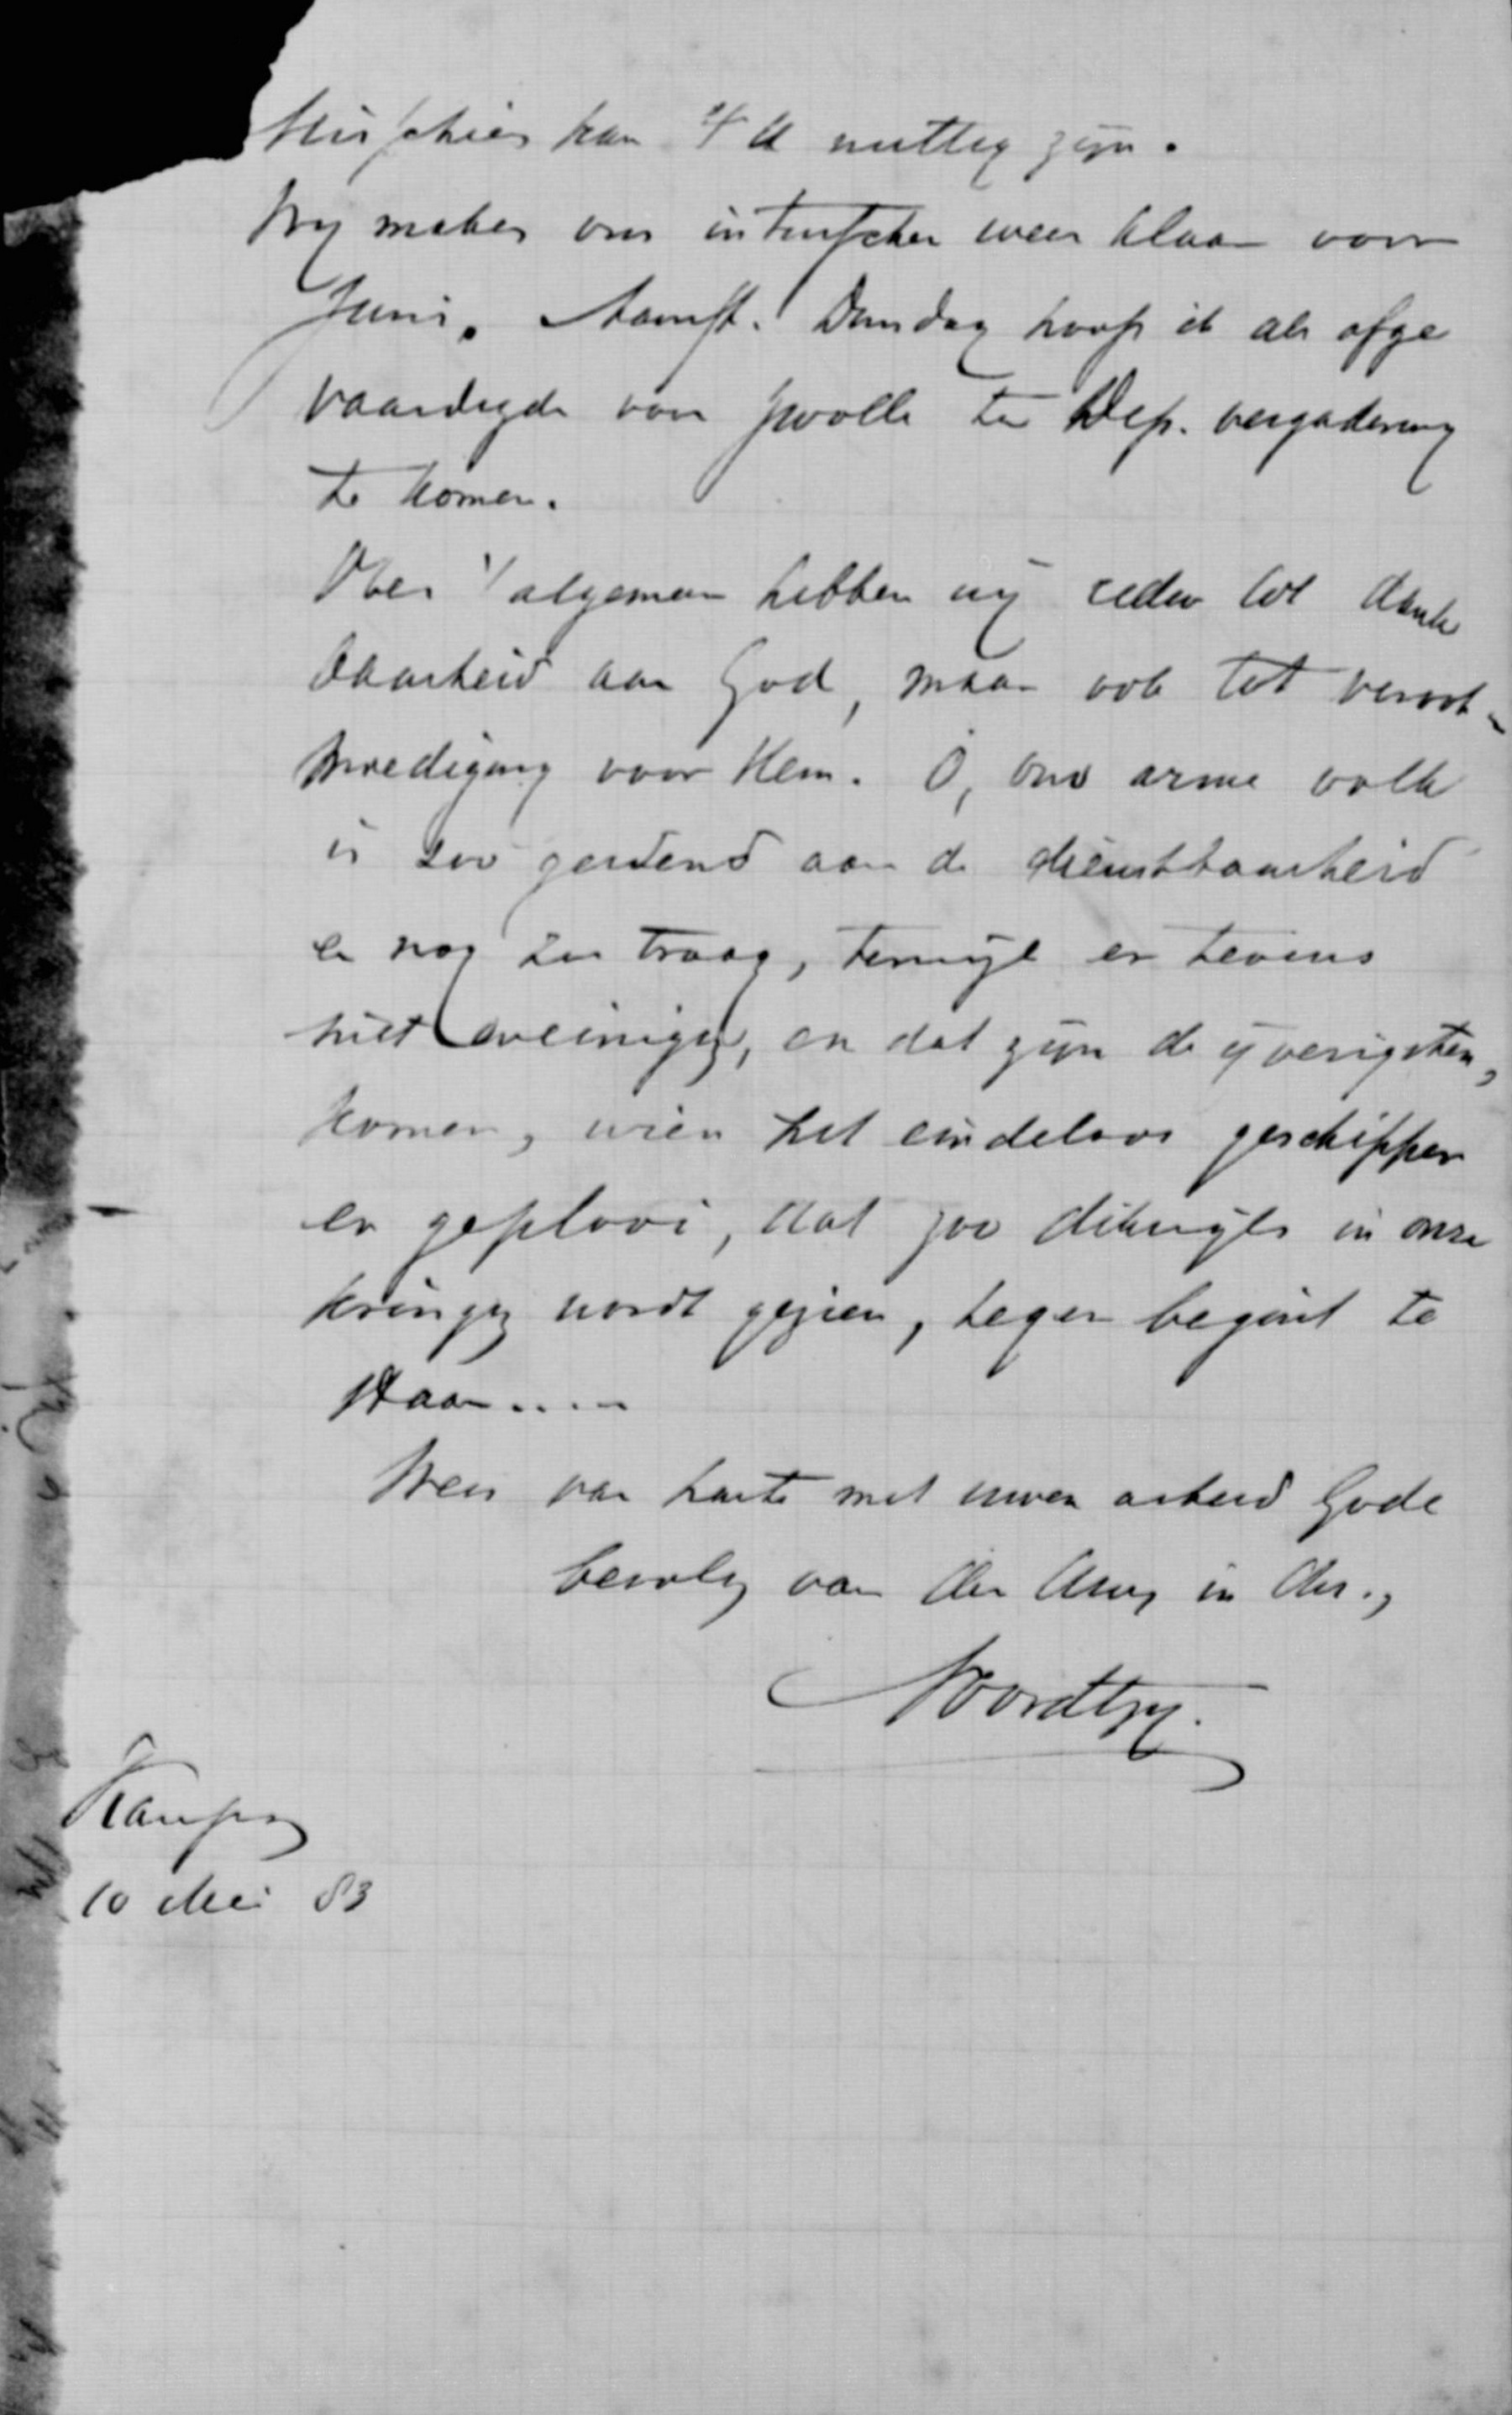 Misschien kan 't U nuttig zijn.
Wij maken ons intusschen weer klaar voor
Juni. Aanst. Dinsdag hoop ik als afge
vaardigde voor Zwolle ter Dep. vergadering
te komen.
Over 't algemeen hebben wij reden tot dank
baarheid aan God, maar ook tot veroot-
moediging voor Hem. O, ons arme volk
is zoo gewend aan de dienstbaarheid
en nog zoo traag, terwijl er tevens
niet weinigen, en dat zijn de ijverigsten,
komen, wien het eindeloos geschipper
en geplooi, dat zoo dikwijls in onze
kringen wordt gezien, tegen begint te
staan.....
Wees van harte met uwen arbeid Gode
bevolen van den Uwen in Chr.,
Noordtzij.
Kampen
10 Mei 83